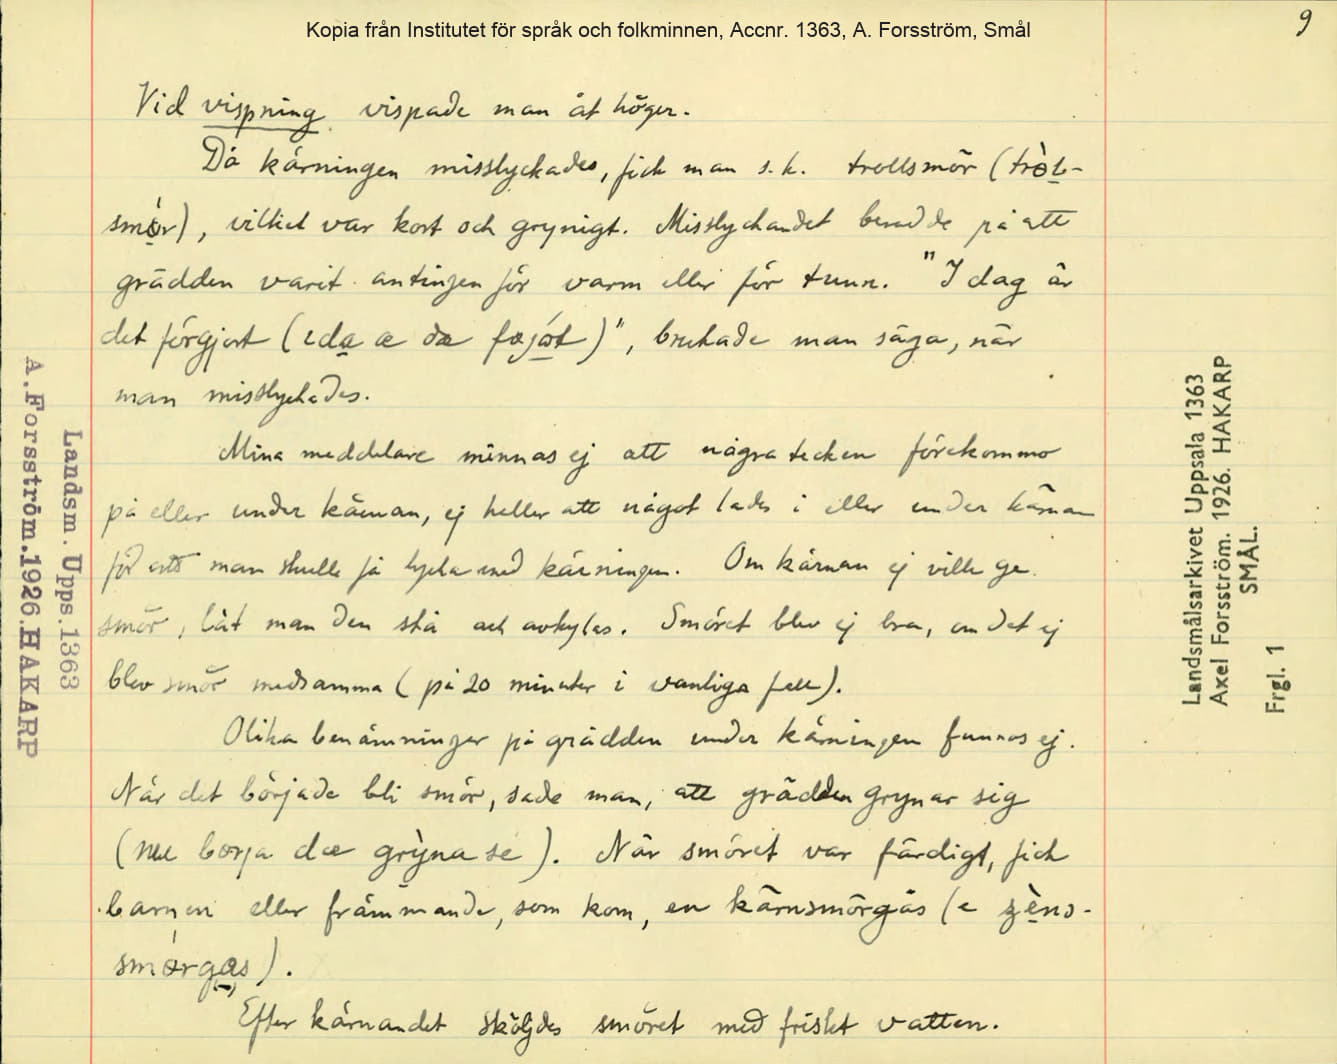 Kopia från Institutet för språk och folkminnen, Accnr. 1363, A. Forsström, Smål
9
Vid vispning vispade man åt höger.
Då kärningen misslyckades, fick man s.k. trollsmör (
), vilket var kort och grynigt. Misslyckandet berodde på att
grädden varit antingen för varm eller för tunn. "I dag är
det förgjort ( )", brukade man säga, när
man misslyckades.
Mina meddelare minnas ej att några tecken förekommo
på eller under kärnan, ej heller att något lades i eller under kärnan
för att man skulle få lycka med kärningen. Om kärnan ej ville ge
smör, lät man den stå och avkylas. Smöret blev ej bra, om det ej
blev smör medsamma (på 20 minuter i vanliga fall).
Olika benämningar på grädden under kärningen funnos ej.
När det började bli smör, sade man, att grädden grynar sig
( ). När smöret var färdigt, fick
barnen eller främmande, som kom, en kärnsmörgås (
).
Efter kärnandet sköljdes smöret med friskt vatten.
Landsm. Upps. 1363
A. Forsström. 1926. HAKARP
Landsmålsarkivet Uppsala 1363
Axel Forsström. 1926. HAKARP
SMÅL.
Frgl. 1